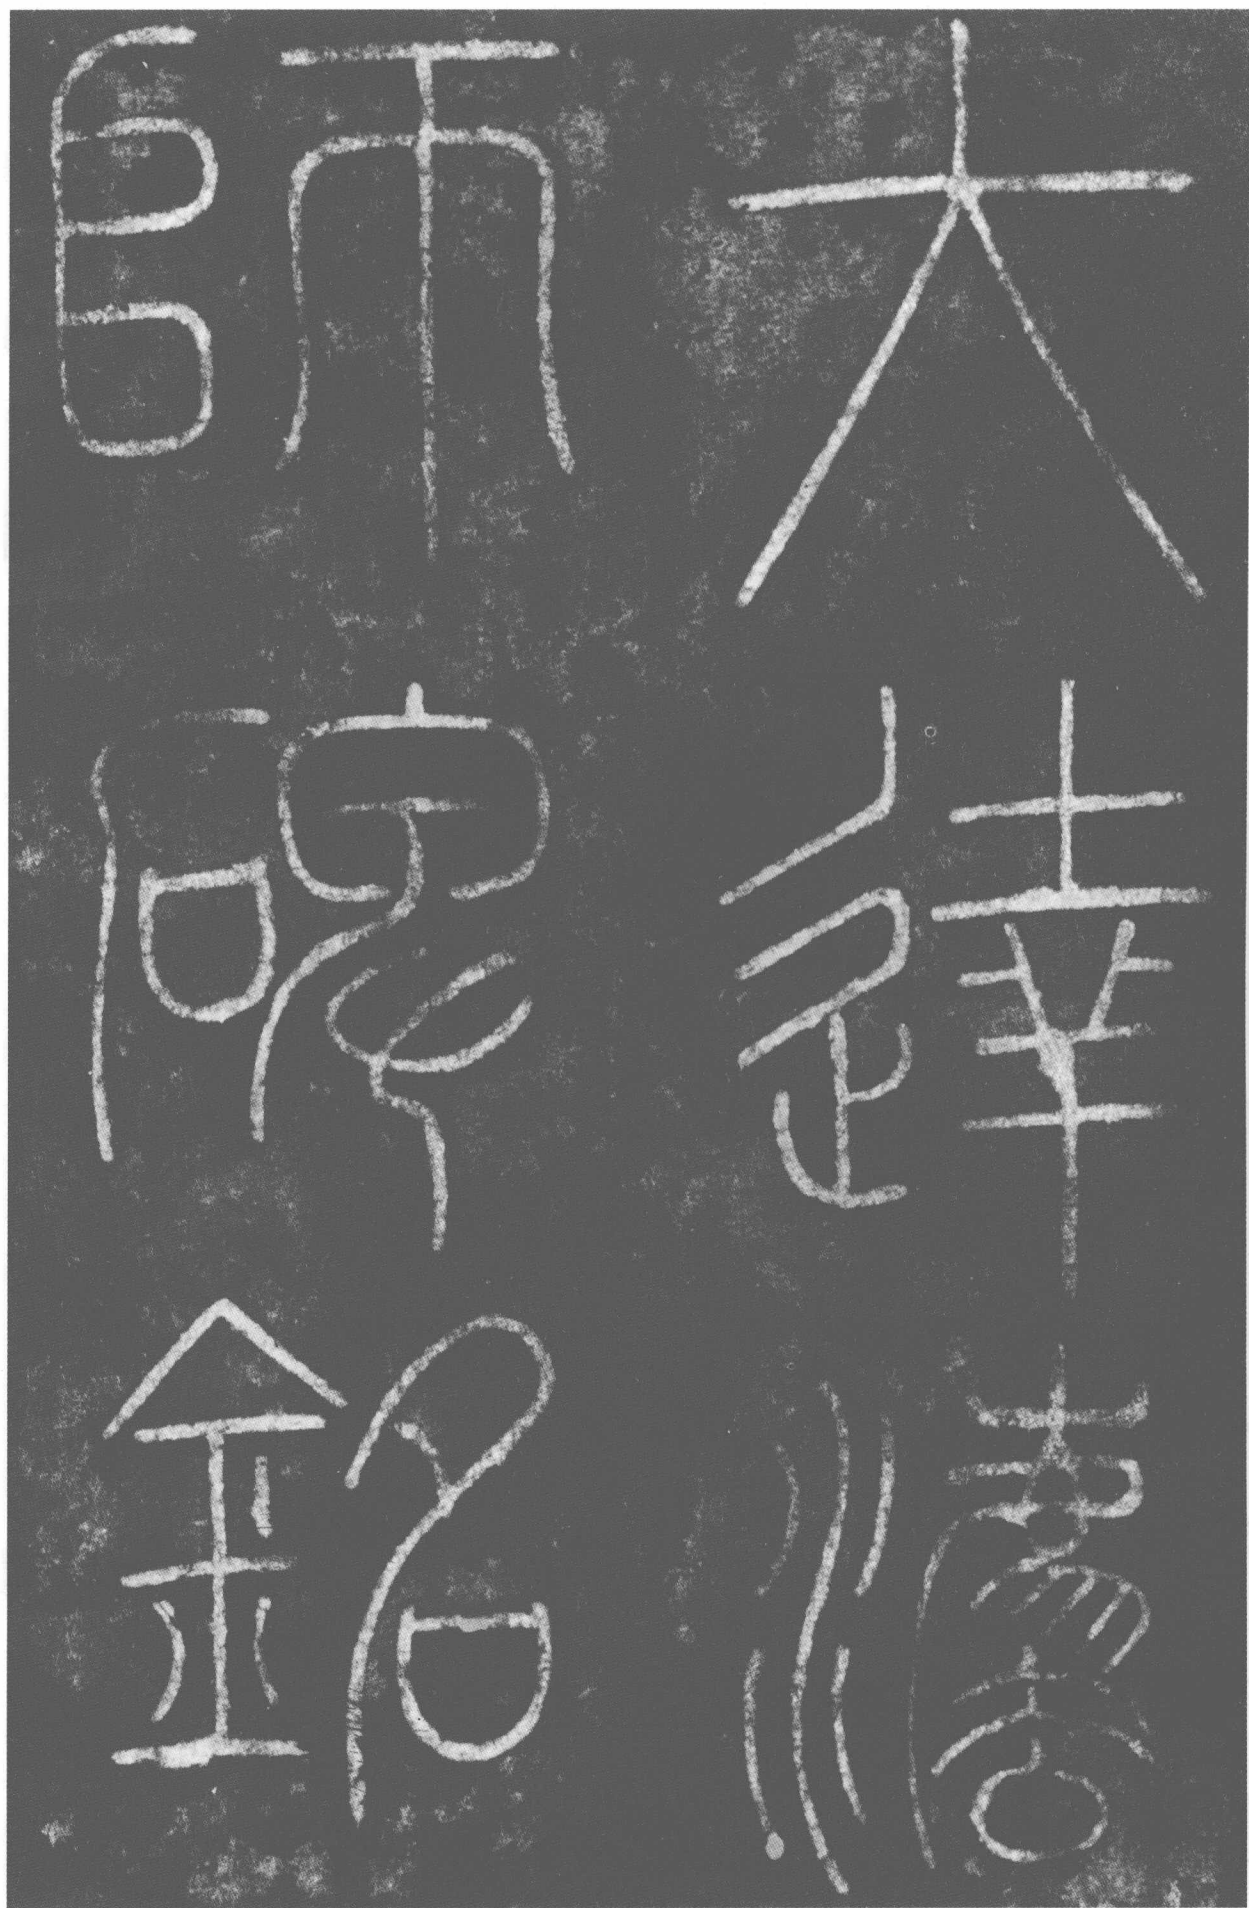 大達灋
師碑銘